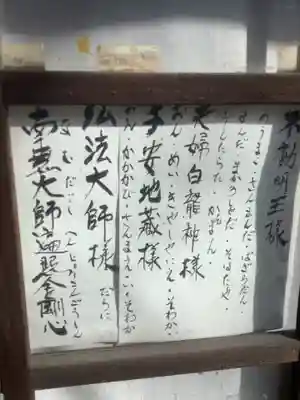 不動明王様
のうまく・さんまんだ・ばざらだん・
せんだ・まかろしゃだ・そわたや・
うんたらた・かんまん
夫婦白龍神様
おん・めい・きゃしゃにえ・そわか・
子安地蔵様
おん・かかかび・さんまえい・そわか
弘法大師様
なむだいし へんじょうこんごうしん
南無大師遍照金剛心